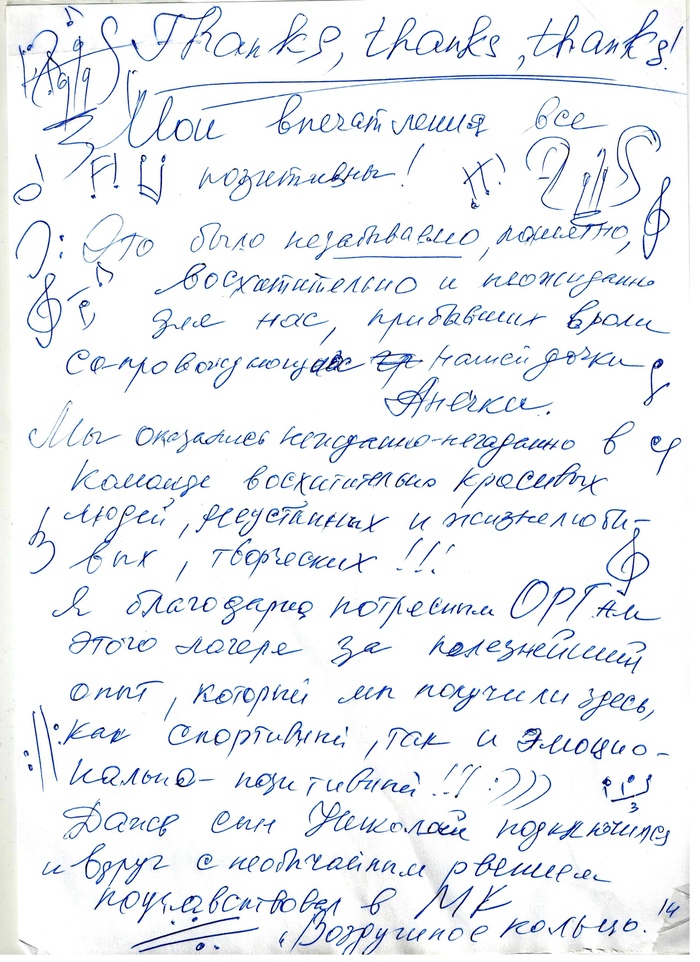 Thanks, thanks, thanks!
Мои впечатления все
позитивны!
Это было незабываемо, понятно,
восхитительно и неожиданно
для нас, прибывших в роли
сопровождающих нашей дочки
Анечки.
Мы оказались неждано-негаданно в
команде восхитительно красивых
людей, неустанных и жизнелюби-
вых, творческих!!!
Я благодарна потрясным ОРГам
этого лагеря за полезнейший
опыт, который мы получили здесь,
как спортивный, так и эмоцио-
нально-позитивный!!! :)))
Даже сын Николай подключился
и вдруг с необычайным рвением
поучавствовал в МК
"Воздушное кольцо.
14